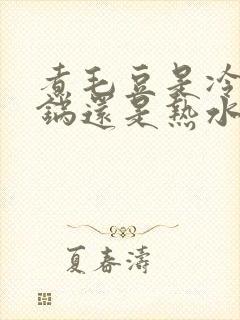 煮毛豆是冷
鍋還是熱水
夏春濤